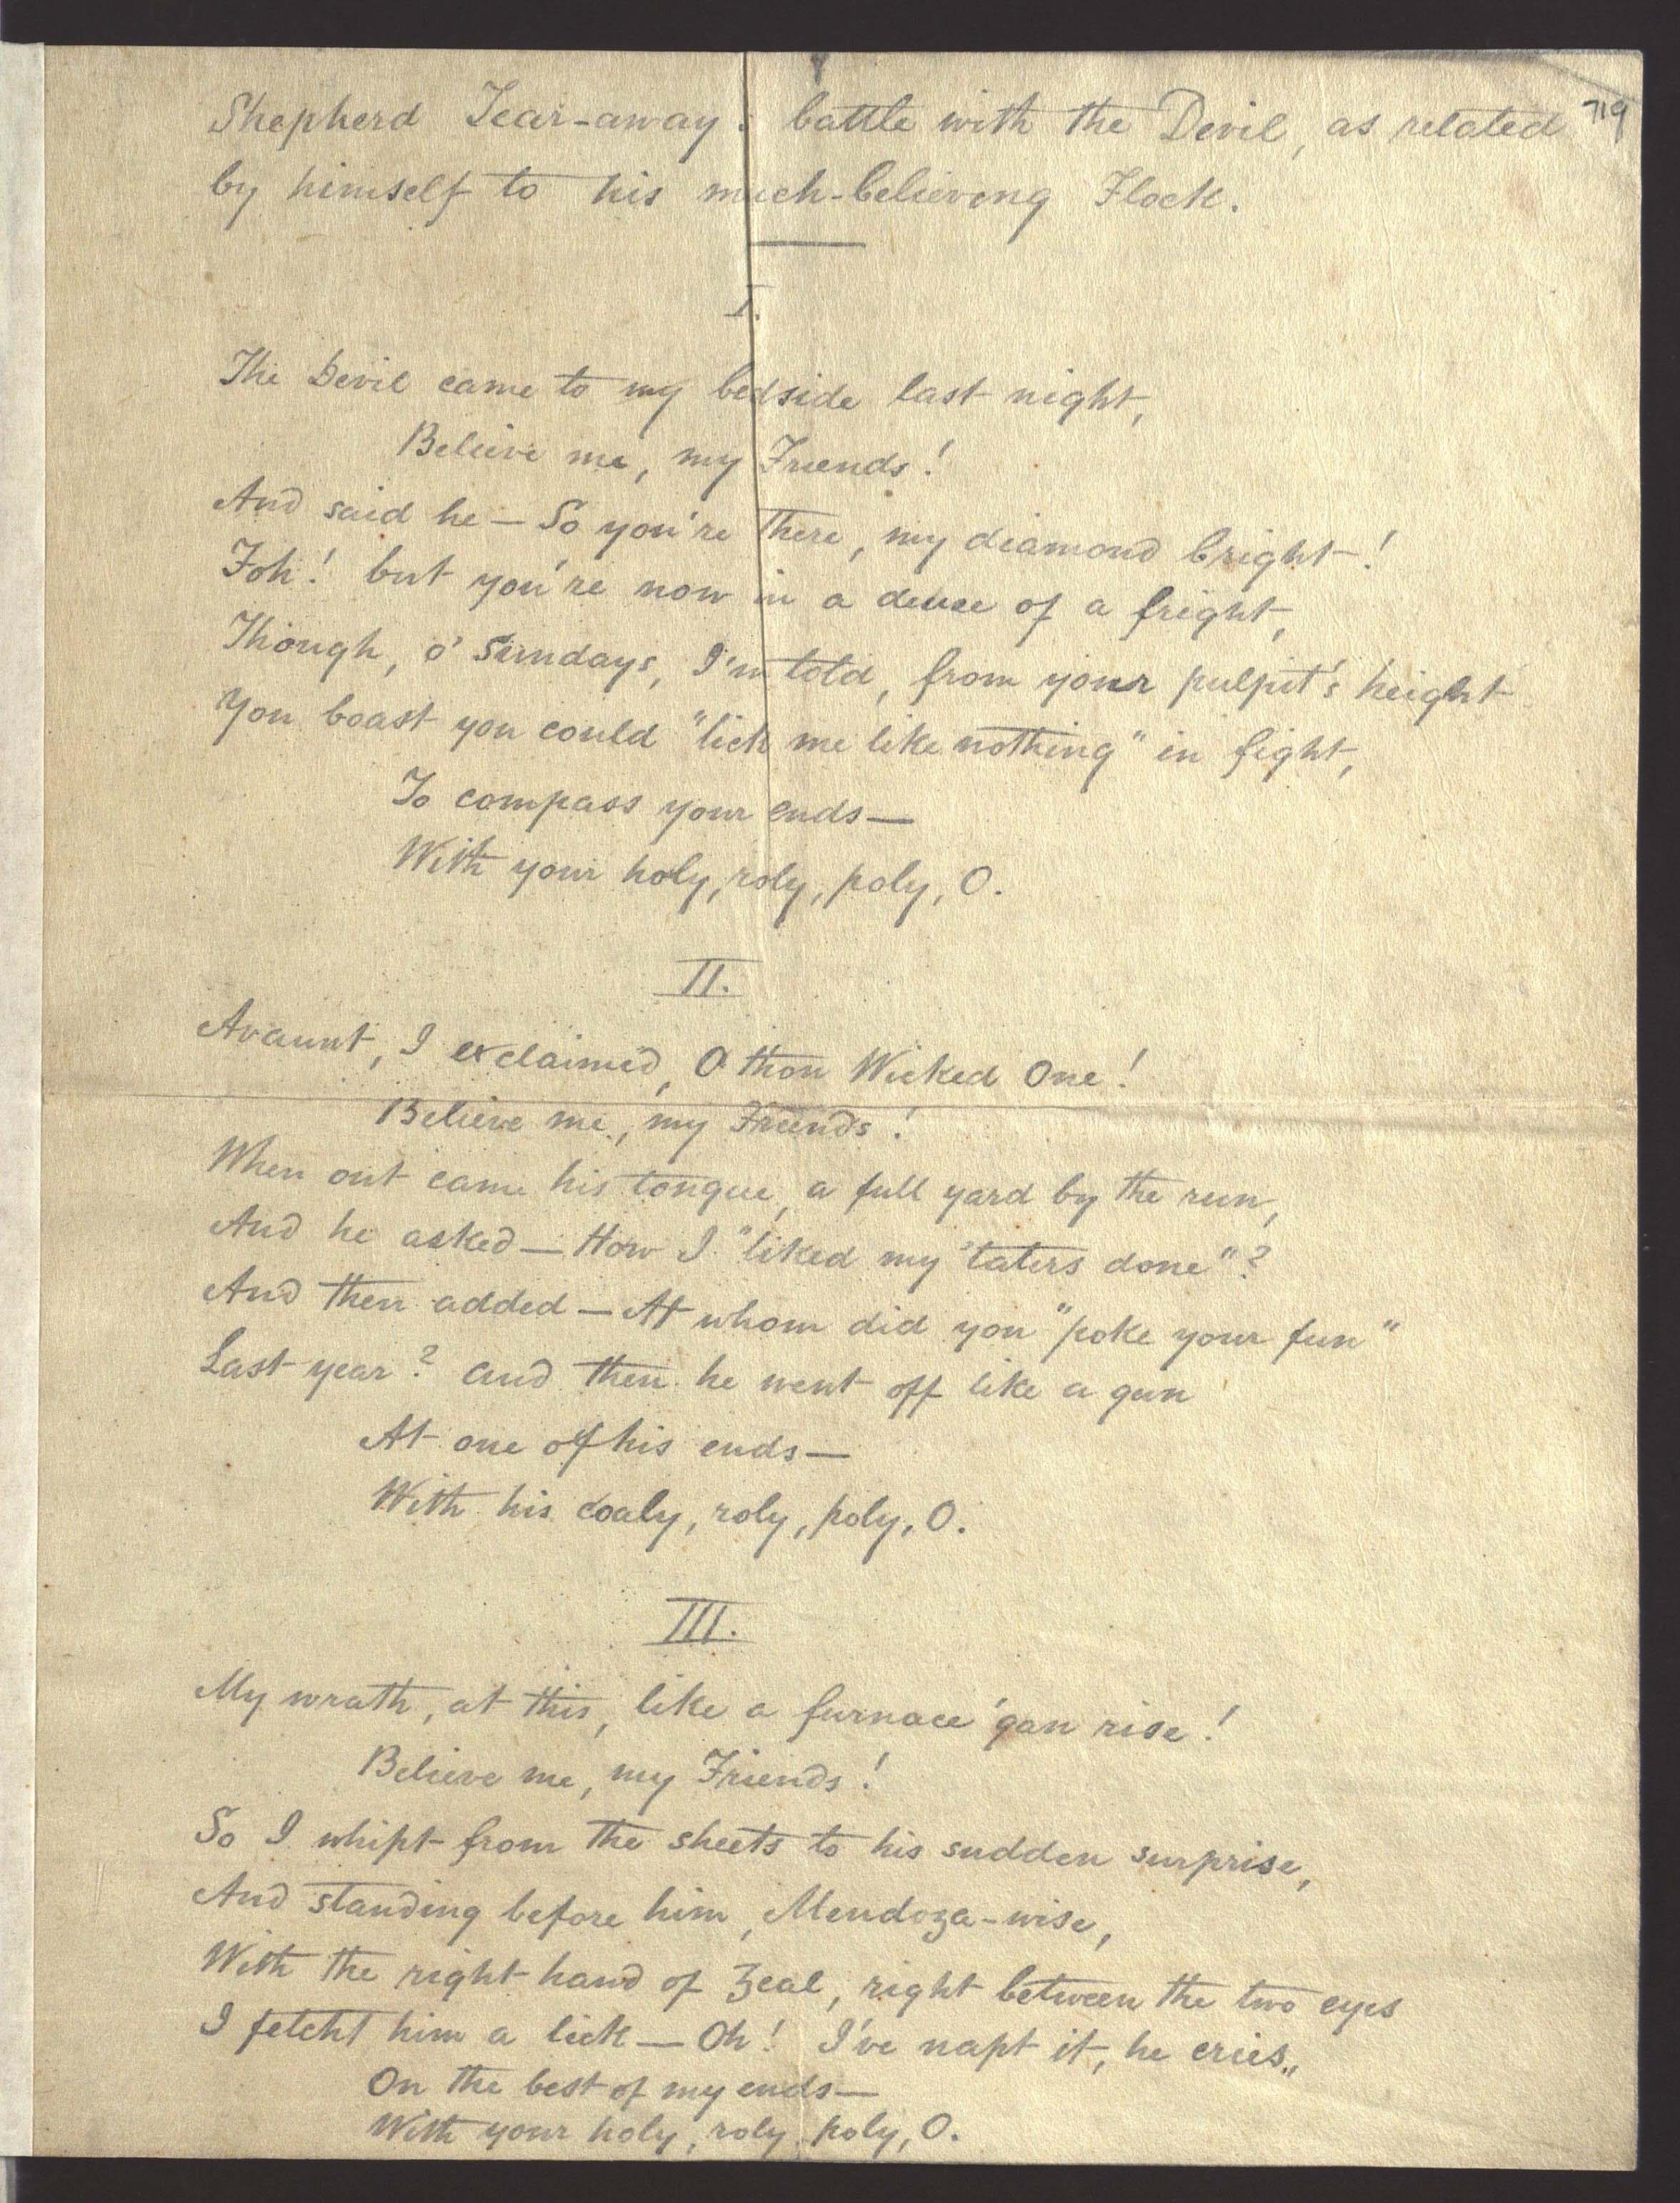 719
Shepherd Tear-away's battle with the Devil, as related
by himself to his much-believing Flock.
I.
The Devil came to my bedside last night,
Believe me, my Friends!
And said he — So you're there, my diamond bright!
Foh! but you're now in a deuce of a fright,
Though, o' Sundays, I'm told, from your pulpit's height
You boast you could "lick me like nothing" in fight,
To compass your ends —
With your holy, roly, poly, O.
II.
Avaunt, I exclaim'd, O thou Wicked One!
Believe me, my Friends!
When out came his tongue, a full yard by the run,
And he asked — How I "liked my 'taters done"?
And then added — At whom did you "poke your fun"
Last year? and then he went off like a gun
At one of his ends —
With his coaly, roly, poly, O.
III.
My wrath, at this, like a furnace 'gan rise!
Believe me, my Friends!
So I whipt from the sheets to his sudden surprise,
And standing before him, Mendoza-wise,
With the right hand of Zeal, right between the two eyes
I fetcht him a lick — Oh! I've napt it, he cries,,
On the best of my ends —
With your holy, roly, poly, O.